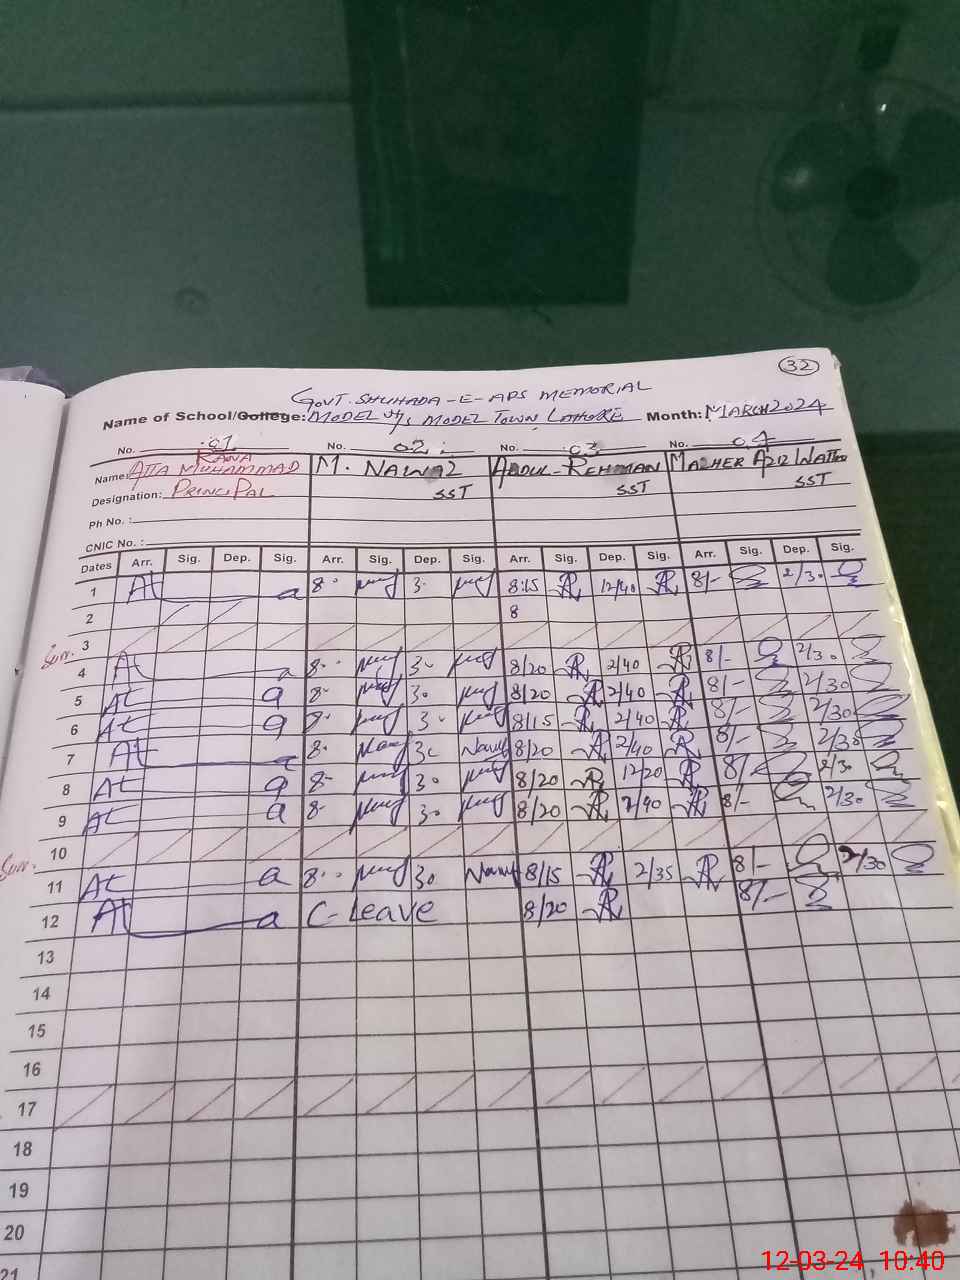 32
GOVT. SHUHADA-E-APS MEMORIAL
Name of School/College: MODEL H/S MODEL TOWN LAHORE Month: MARCH 2024
No. 01 No. 02 No. 03 No. 04
RANA
Name: ATTA MUHAMMAD M. NAWAZ ABDUL-REHMAN MAZHER AZIZ WATTOO
Designation: PRINCIPAL SST SST SST
Ph No. :
CNIC No. :
Dates Arr. Sig. Dep. Sig. Arr. Sig. Dep. Sig. Arr. Sig. Dep. Sig. Arr. Sig. Dep. Sig.
1 At a 8 3 8:15 12/40 8/- 2/30
2 8
Sun. 3
4 At a 8 30 8/20 2/40 8/- 2/30
5 At a 8 30 8/20 2/40 8/- 2/30
6 At a 8 30 8/15 2/40 8/- 2/30
7 At a 8 30 Nawaz 8/20 2/40 8/- 2/30
8 At a 8 30 8/20 12/20 8/- 2/30
9 At a 8 30 8/20 2/40 8/- 2/30
Sun. 10
11 At a 8 30 Nawaz 8/15 2/35 8/- 2/30
12 At a C-Leave 8/20 8/-
13
14
15
16
17
18
19
20
21
12-03-24 10:40